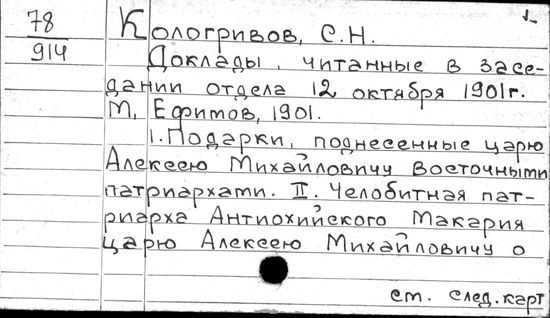 1
78
914
Кологривов, С.Н.
Доклады, читанные в засе-
дании отдела 12 октября 1901г.
М, Ефимов, 1901.
1. Подарки, поднесенные царю
Алексею Михайловичу восточными
патриархами. II. Челобитная пат-
риарха Антиохийского Макария
царю Алексею Михайловичу о
см. след. карт